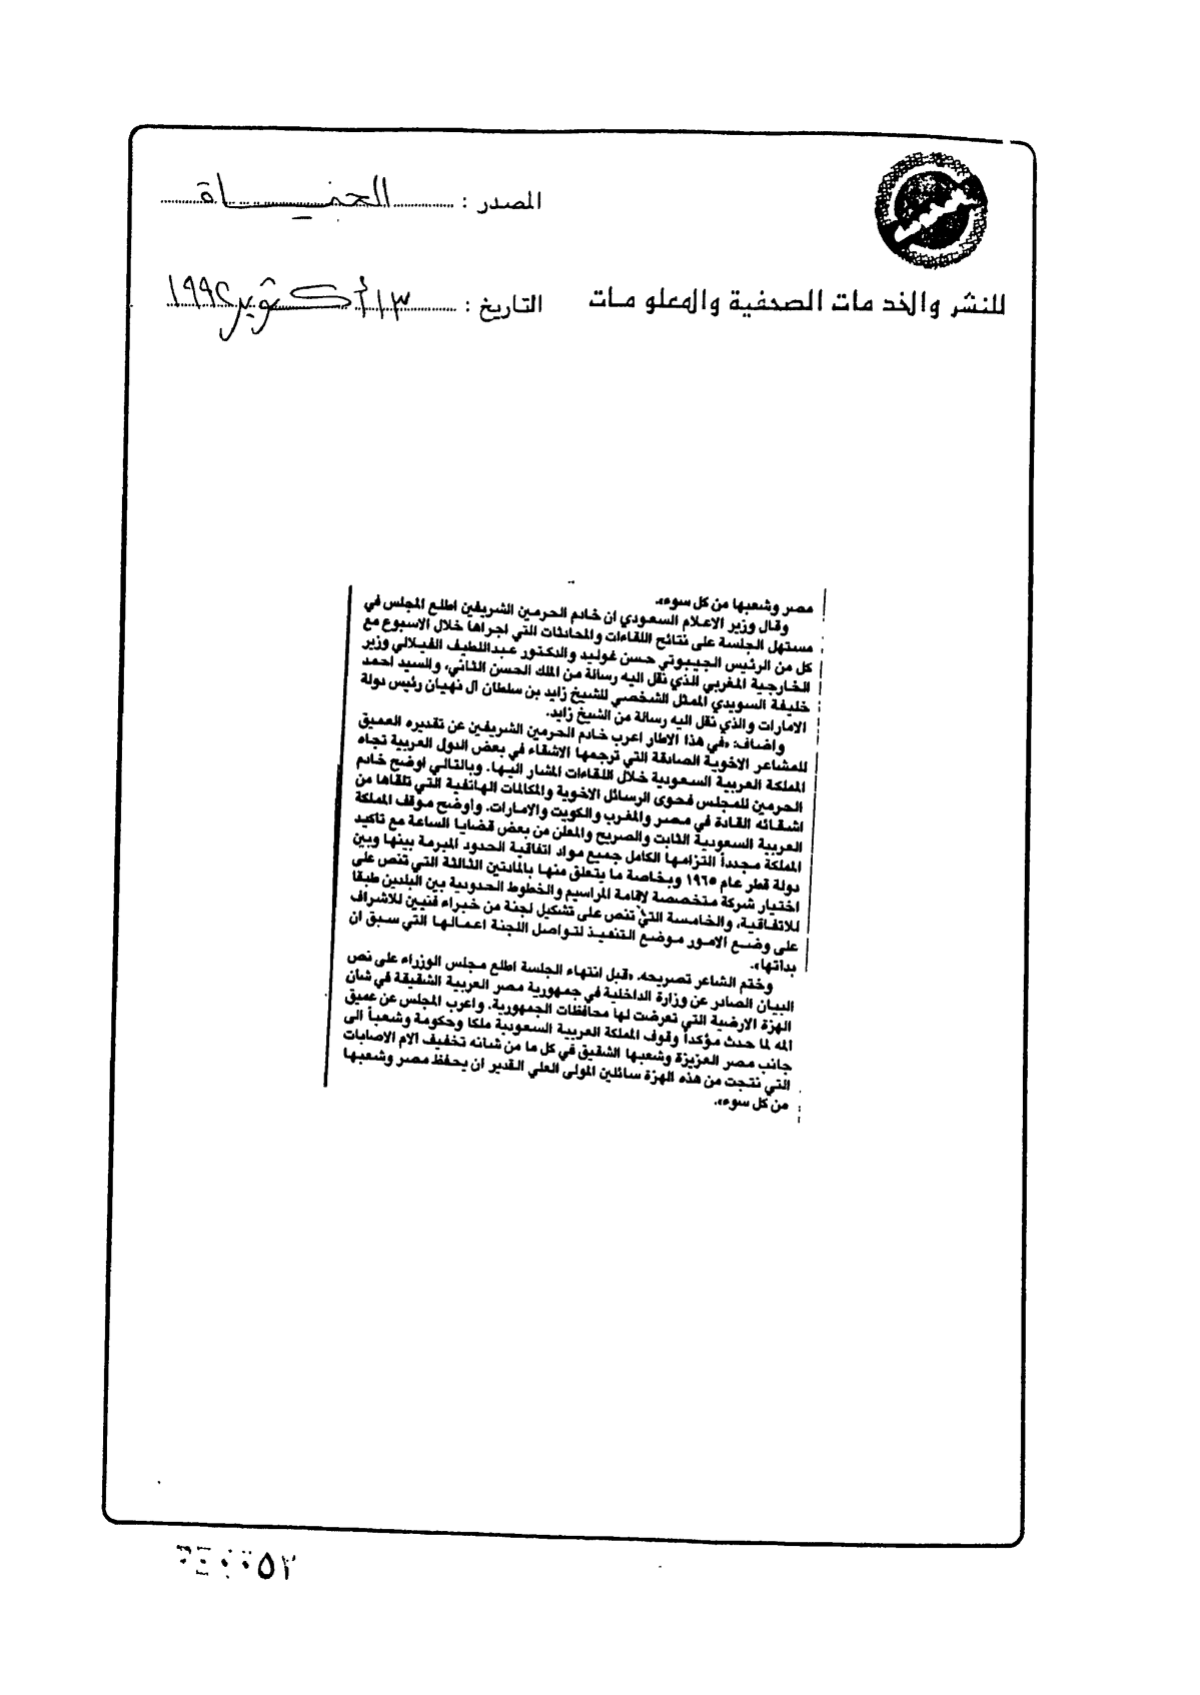 المصدر : الحياة
للنشر والخدمات الصحفية والمعلومات
التاريخ : ١٣ أكتوبر ١٩٩٢
مصر وشعبها من كل سوء».
وقال وزير الاعلام السعودي ان خادم الحرمين الشريفين اطلع المجلس في
مستهل الجلسة على نتائج اللقاءات والمحادثات التي اجراها خلال الاسبوع مع
كل من الرئيس الجيبوتي حسن غوليد والدكتور عبداللطيف الفيلالي وزير
الخارجية المغربي الذي نقل اليه رسالة من الملك الحسن الثاني، والسيد احمد
خليفة السويدي الممثل الشخصي للشيخ زايد بن سلطان آل نهيان رئيس دولة
الامارات والذي نقل اليه رسالة من الشيخ زايد.
واضاف: «في هذا الاطار اعرب خادم الحرمين الشريفين عن تقديره العميق
للمشاعر الاخوية الصادقة التي ترجمها الاشقاء في بعض الدول العربية تجاه
المملكة العربية السعودية خلال اللقاءات المشار اليها. وبالتالي اوضح خادم
الحرمين للمجلس فحوى الرسائل الاخوية والمكالمات الهاتفية التي تلقاها من
اشقائه القادة في مصر والمغرب والكويت والامارات. واوضح موقف المملكة
العربية السعودية الثابت والصريح والمعلن من بعض قضايا الساعة مع تاكيد
المملكة مجدداً التزامها الكامل جميع مواد اتفاقية الحدود المبرمة بينها وبين
دولة قطر عام ١٩٦٥ وبخاصة ما يتعلق منها بالمادتين الثالثة التي تنص على
اختيار شركة متخصصة لإقامة المراسيم والخطوط الحدودية بين البلدين طبقا
للاتفاقية، والخامسة التي تنص على تشكيل لجنة من خبراء فنيين للاشراف
على وضع الامور موضع التنفيذ لتواصل اللجنة اعمالها التي سبق ان
بداتها».
وختم الشاعر تصريحه، «قبل انتهاء الجلسة اطلع مجلس الوزراء على نص
البيان الصادر عن وزارة الداخلية في جمهورية مصر العربية الشقيقة في شان
الهزة الارضية التي تعرضت لها محافظات الجمهورية. واعرب المجلس عن عميق
المه لما حدث مؤكداً وقوف المملكة العربية السعودية ملكا وحكومة وشعباً الى
جانب مصر العزيزة وشعبها الشقيق في كل ما من شانه تخفيف الام الاصابات
التي نتجت من هذه الهزة سائلين المولى العلي القدير ان يحفظ مصر وشعبها
من كل سوء».